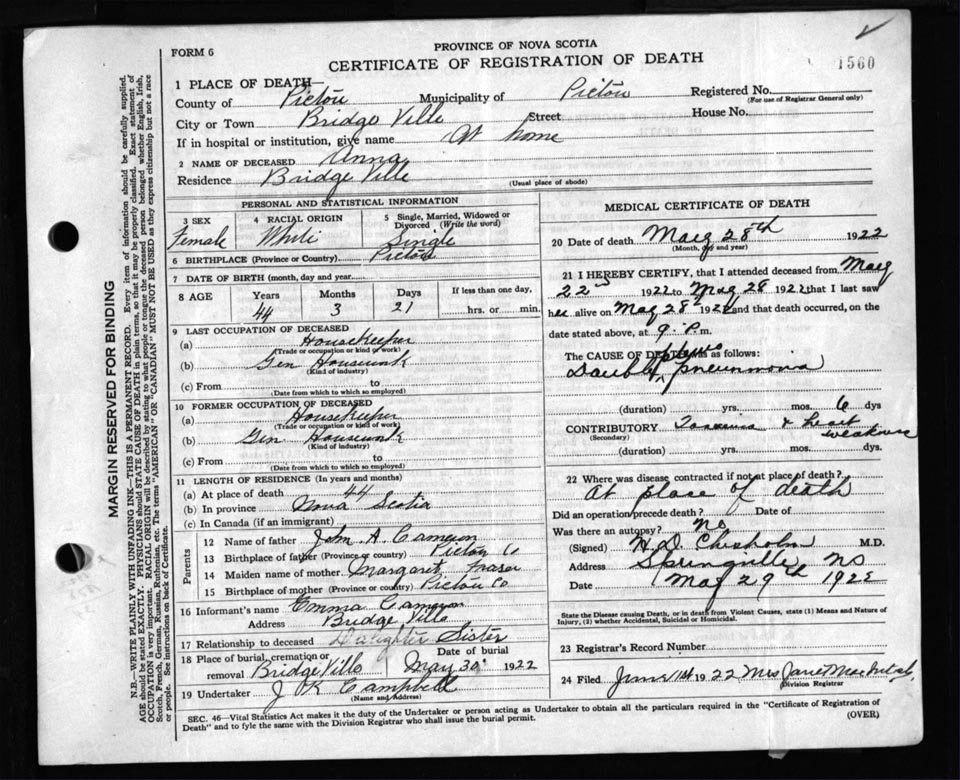 FORM 6
PROVINCE OF NOVA SCOTIA
CERTIFICATE OF REGISTRATION OF DEATH
1560
1 PLACE OF DEATH—
County of Pictou Municipality of Pictou Registered No.
(For use of Registrar General only)
City or Town Bridge Ville Street House No.
If in hospital or institution, give name At home
2 NAME OF DECEASED Anna
Residence Bridge Ville
(Usual place of abode)
PERSONAL AND STATISTICAL INFORMATION
3 SEX
Female
4 RACIAL ORIGIN
White
5 Single, Married, Widowed or Divorced (Write the word)
Single
6 BIRTHPLACE (Province or Country) Pictou
7 DATE OF BIRTH (month, day and year)
8 AGE Years Months Days If less than one day,
44 3 21 hrs. or min.
9 LAST OCCUPATION OF DECEASED
(a) Housekeeper
(Trade or occupation or kind of work)
(b) Gen Housework
(Kind of industry)
(c) From to
(Date from which to which so employed)
10 FORMER OCCUPATION OF DECEASED
(a) Housekeeper
(Trade or occupation or kind of work)
(b) Gen Housework
(Kind of industry)
(c) From to
(Date from which to which so employed)
11 LENGTH OF RESIDENCE (In years and months)
(a) At place of death 44
(b) In province Nova Scotia
(c) In Canada (if an immigrant)
Parents
12 Name of father John A. Cameron
13 Birthplace of father (Province or country) Pictou Co
14 Maiden name of mother Margaret Fraser
15 Birthplace of mother (Province or country) Pictou Co
16 Informant's name Emma Cameron
Address Bridge Ville
17 Relationship to deceased Daughter Sister
18 Place of burial, cremation or removal Bridge Ville
Date of burial
May 30 1922
19 Undertaker J K Campbell
(Name and address)
MEDICAL CERTIFICATE OF DEATH
20 Date of death May 28th 1922
(Month, day and year)
21 I HEREBY CERTIFY, that I attended deceased from May
22 1922 to May 28 1922 that I last saw
her alive on May 28 1922 and that death occurred, on the
date stated above, at 9 P.m.
The CAUSE OF DEATH was as follows:
Double Pneumonia
(duration) yrs. mos. 6 dys
CONTRIBUTORY & heart weakness
(Secondary)
(duration) yrs. mos. dys.
22 Where was disease contracted if not at place of death?
At place of death
Did an operation precede death? Date of
Was there an autopsy? No
(Signed) H. D. Chisholm M.D.
Address Springville NS
Date May 29th 1922
State the Disease causing Death, or in death from Violent Causes, state (1) Means and Nature of Injury, (2) whether Accidental, Suicidal or Homicidal.
23 Registrar's Record Number
24 Filed June 1st 1922 Mrs Janet
Division Registrar
SEC. 46—Vital Statistics Act makes it the duty of the Undertaker or person acting as Undertaker to obtain all the particulars required in the "Certificate of Registration of
Death" and to fyle the same with the Division Registrar who shall issue the burial permit.
(OVER)
MARGIN RESERVED FOR BINDING
N.B.—WRITE PLAINLY WITH UNFADING INK—THIS IS A PERMANENT RECORD. Every item of information should be carefully supplied.
AGE should be stated EXACTLY. PHYSICIANS should STATE CAUSE OF DEATH in plain terms, so that it may be properly classified. Exact statement of
OCCUPATION is very important. RACIAL ORIGIN will be described by stating to what people or tongue the deceased person belonged whether English, Irish,
Scotch, French, German, Russian, Ruthenian, etc. The terms "AMERICAN" OR "CANADIAN" MUST NOT BE USED as they express citizenship but not a race
or people. See instructions on back of Certificate.